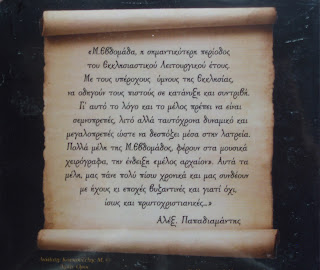 «Μ.Εβδομάδα, η σημαντικότερη περίοδος
του Εκκλησιαστικού Λειτουργικού έτους.
Με τους υπέροχους ύμνους της Εκκλησίας,
να οδηγούν τους πιστούς σε κατάνυξη και συντριβή.
Γι' αυτό το λόγο και το μέλος πρέπει να είναι
σεμνοπρεπές, λιτό αλλά ταυτόχρονα δυναμικό και
μεγαλοπρεπές ώστε να δεσπόζει μέσα στην λατρεία.
Πολλά μέλη της Μ.Εβδομάδος, φέρουν στα μουσικά
χειρόγραφα, την ένδειξη «μέλος αρχαίον». Αυτά τα
μέλη, μας πάνε πολύ πίσω χρονικά και μας συνδέουν
με ήχους κι εποχές βυζαντινές και γιατί όχι,
ίσως και πρωτοχριστιανικές...»
Αλέξ. Παπαδιαμάντης